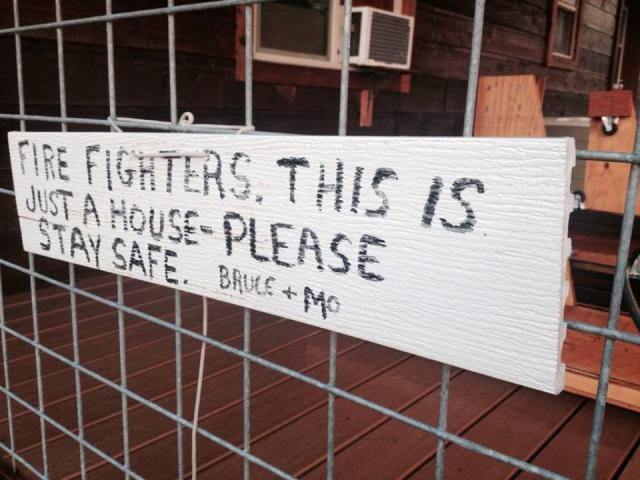 FIRE FIGHTERS. THIS IS
JUST A HOUSE- PLEASE
STAY SAFE. BRUCE + MO